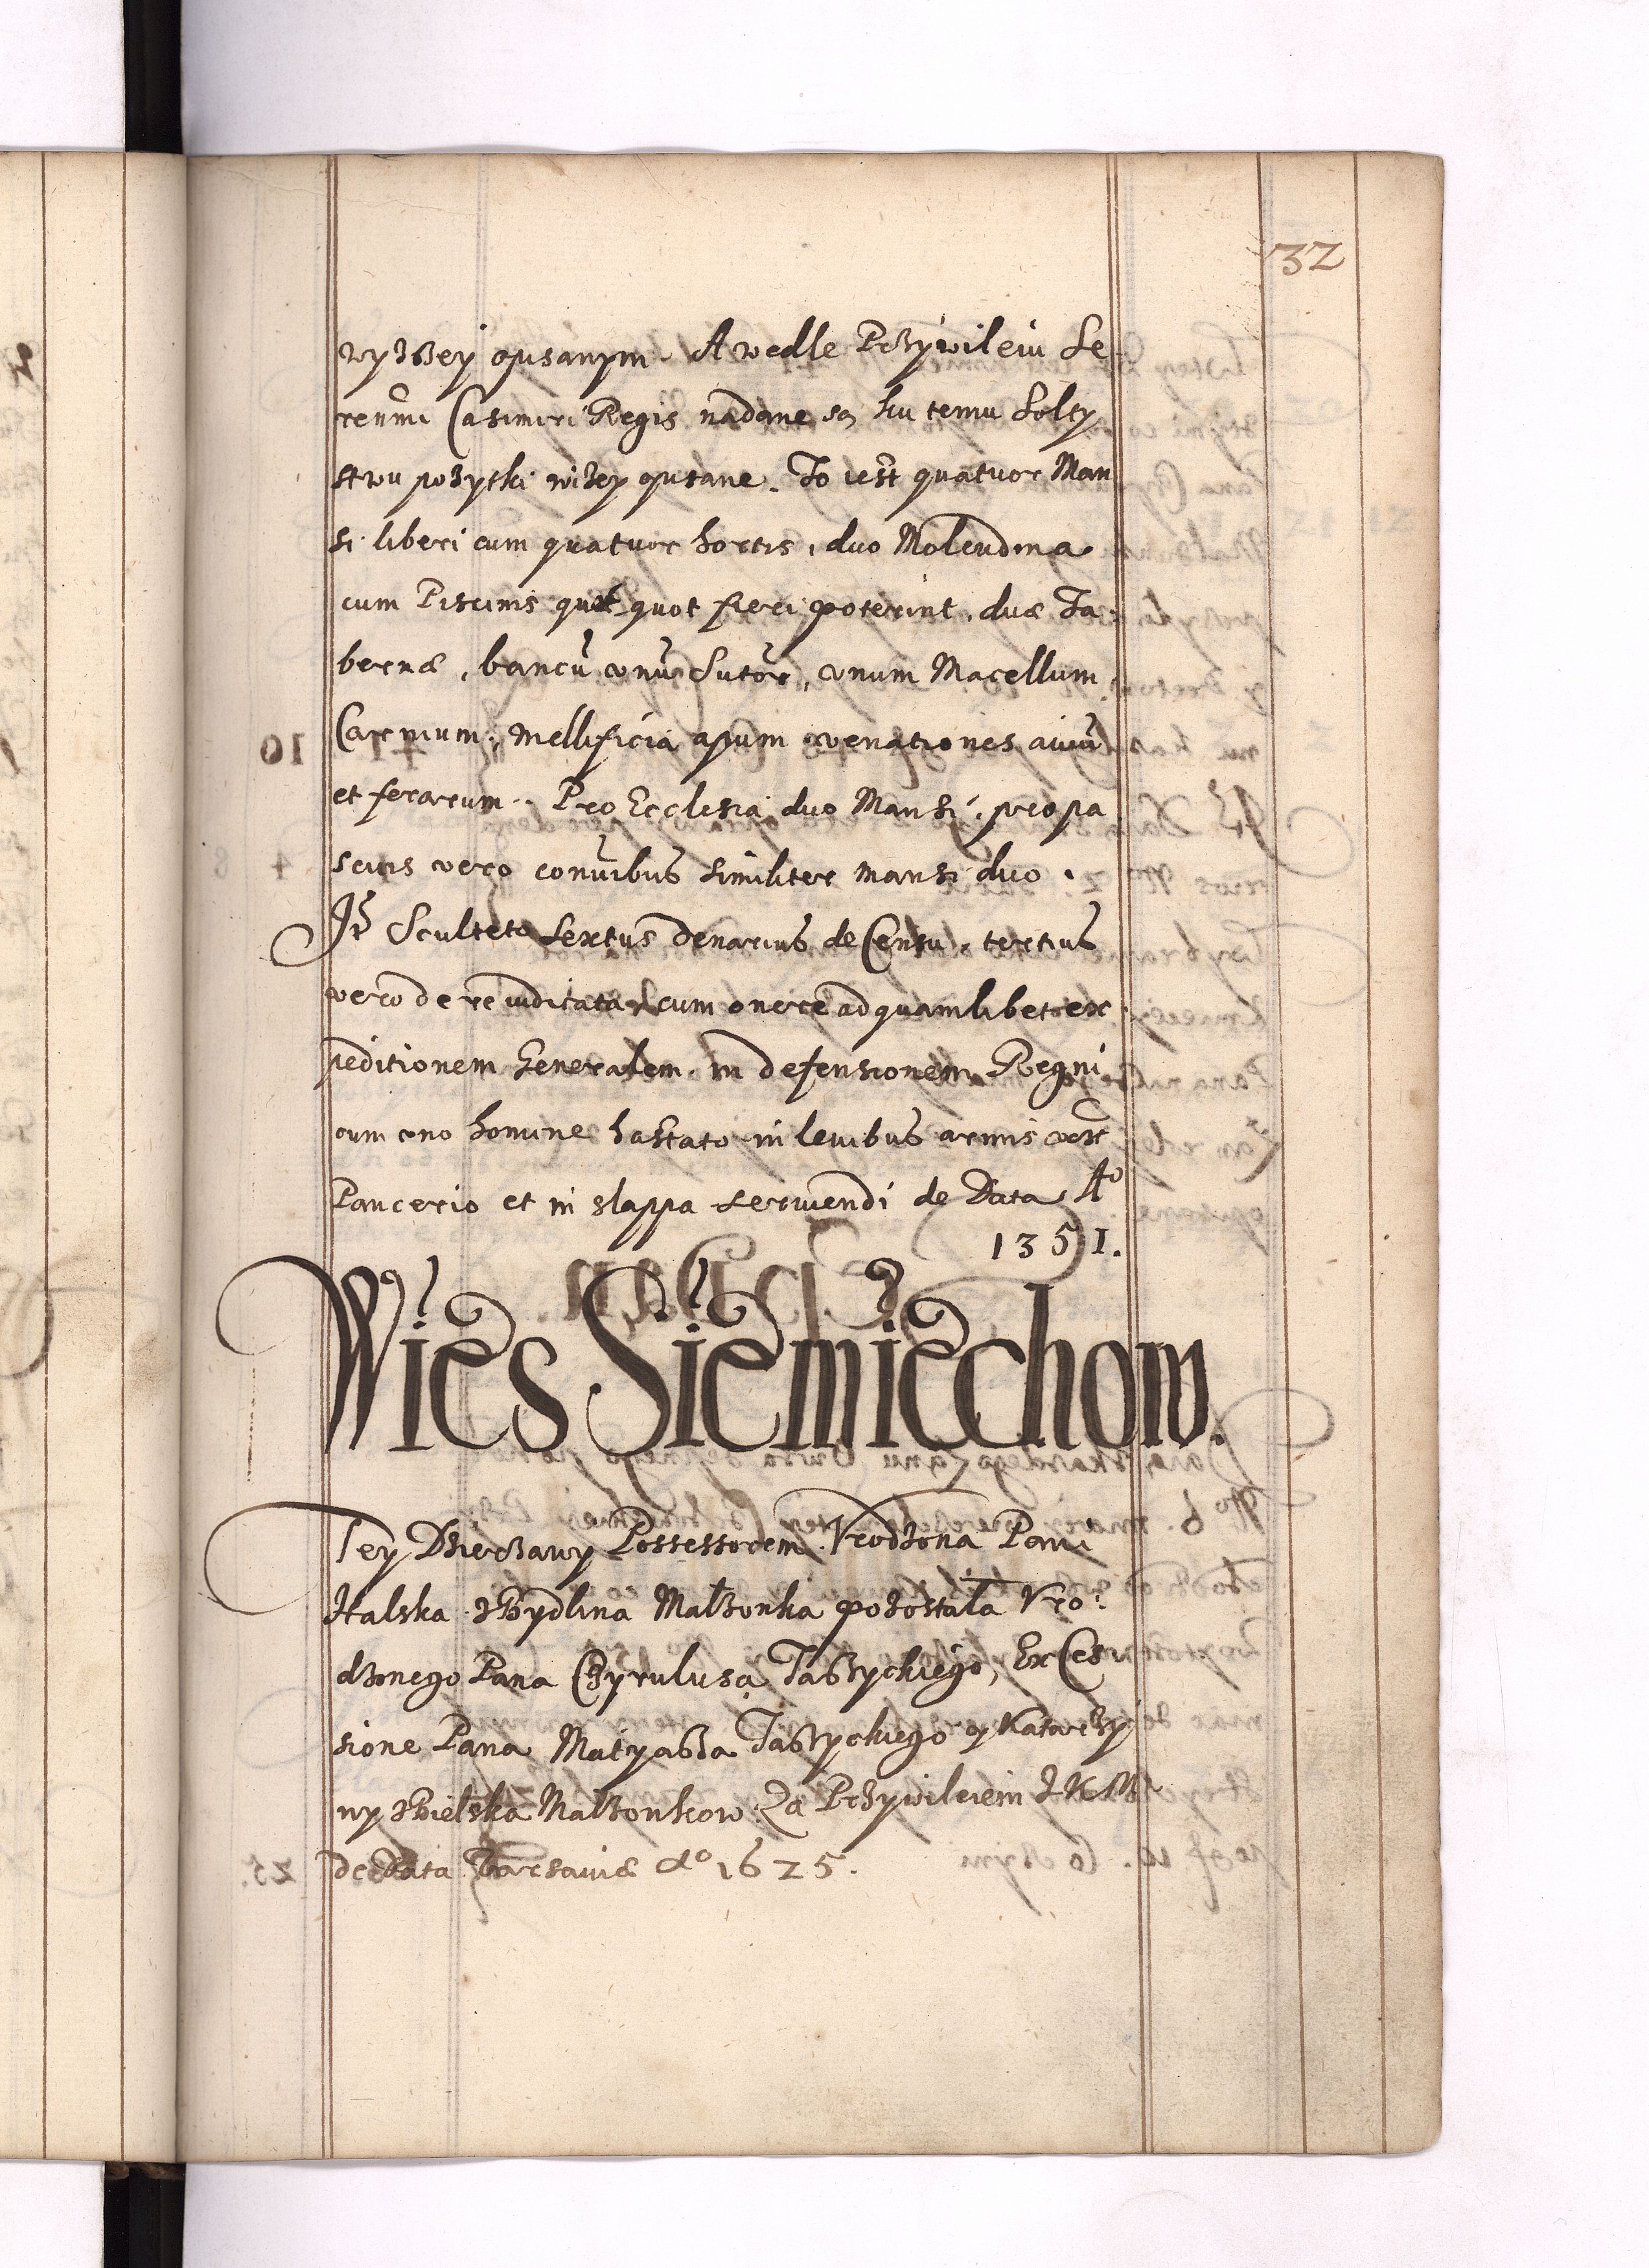 32
wyżßey opisanym. A wedle Przywileiu Se
renmi Casimiri Regis nadane są ku temu Sołty
stwu pożytki niżey opisane. To iest quatuor Man
si liberi cum quatuor hortis, duo Molendina
cum Piscinis quot quot fieri poterint, duæ Ta
bernæ, bancū vnū Sutor, vnum Macellum
Carnium, mellificia apum venationes auiū
et ferarum. Pro Ecclesia duo Mansi, pro pa
scuis vero conuibus similiter mansi duo.
It Sculteto Sextus denarius de Censu, tertius
vero de re iudicata cum onere ad quamlibet ex
peditionem Generalem in defensionem Regni
cum vno homine hastato in leuibus armis
Pancerio et in slappa seruiendi de Data Ao
1351.
Wies Siemiechow.
Tey Dzierżawy Possessorem Vrodzona Pani
Halska z Bydlina Małżonka pozostała Vro:
dzonego Pana Cyrulusa Taßyckiego, Ex Ces
sione Pana Matyaßa Taßyckiego y Katarzy
ny z Bielska Małżonkow. Za Przywileiem J K M
de Data Varsauiæ Ao 1625.